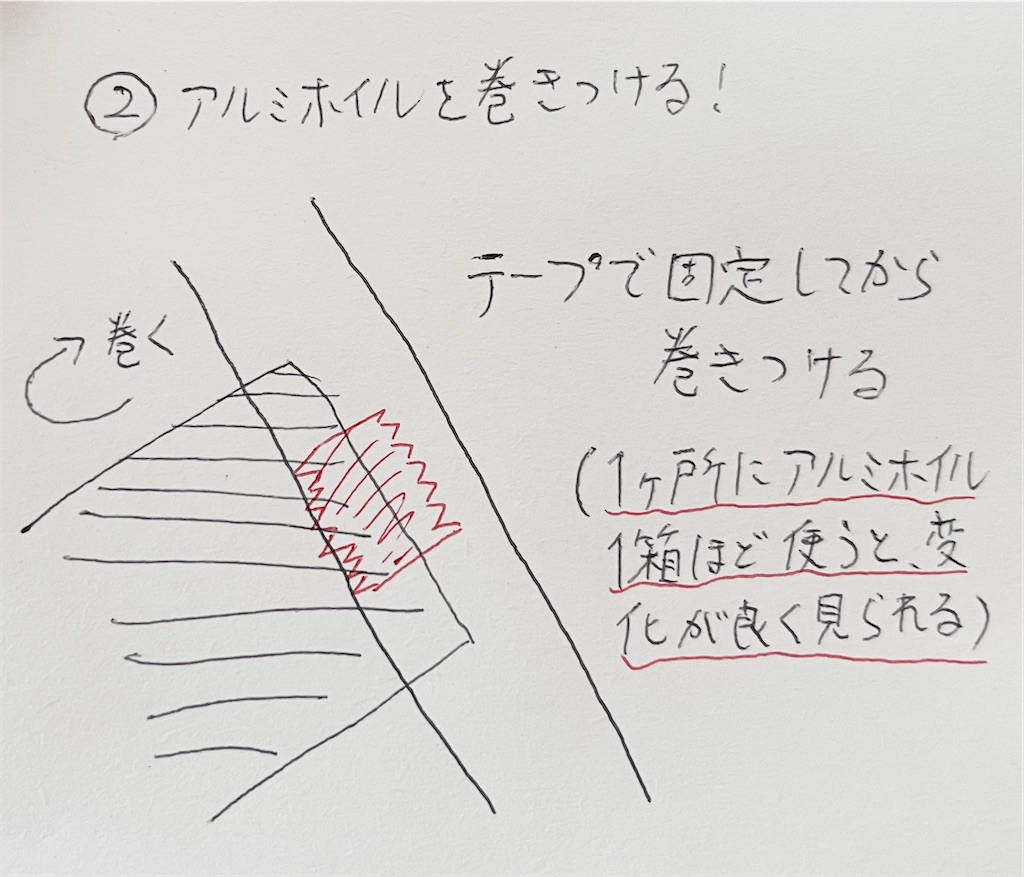 ② アルミホイルを巻きつける！
巻く
テープで固定してから
巻きつける
(1ヶ所にアルミホイル
1箱ほど使うと、変
化が良く見られる)